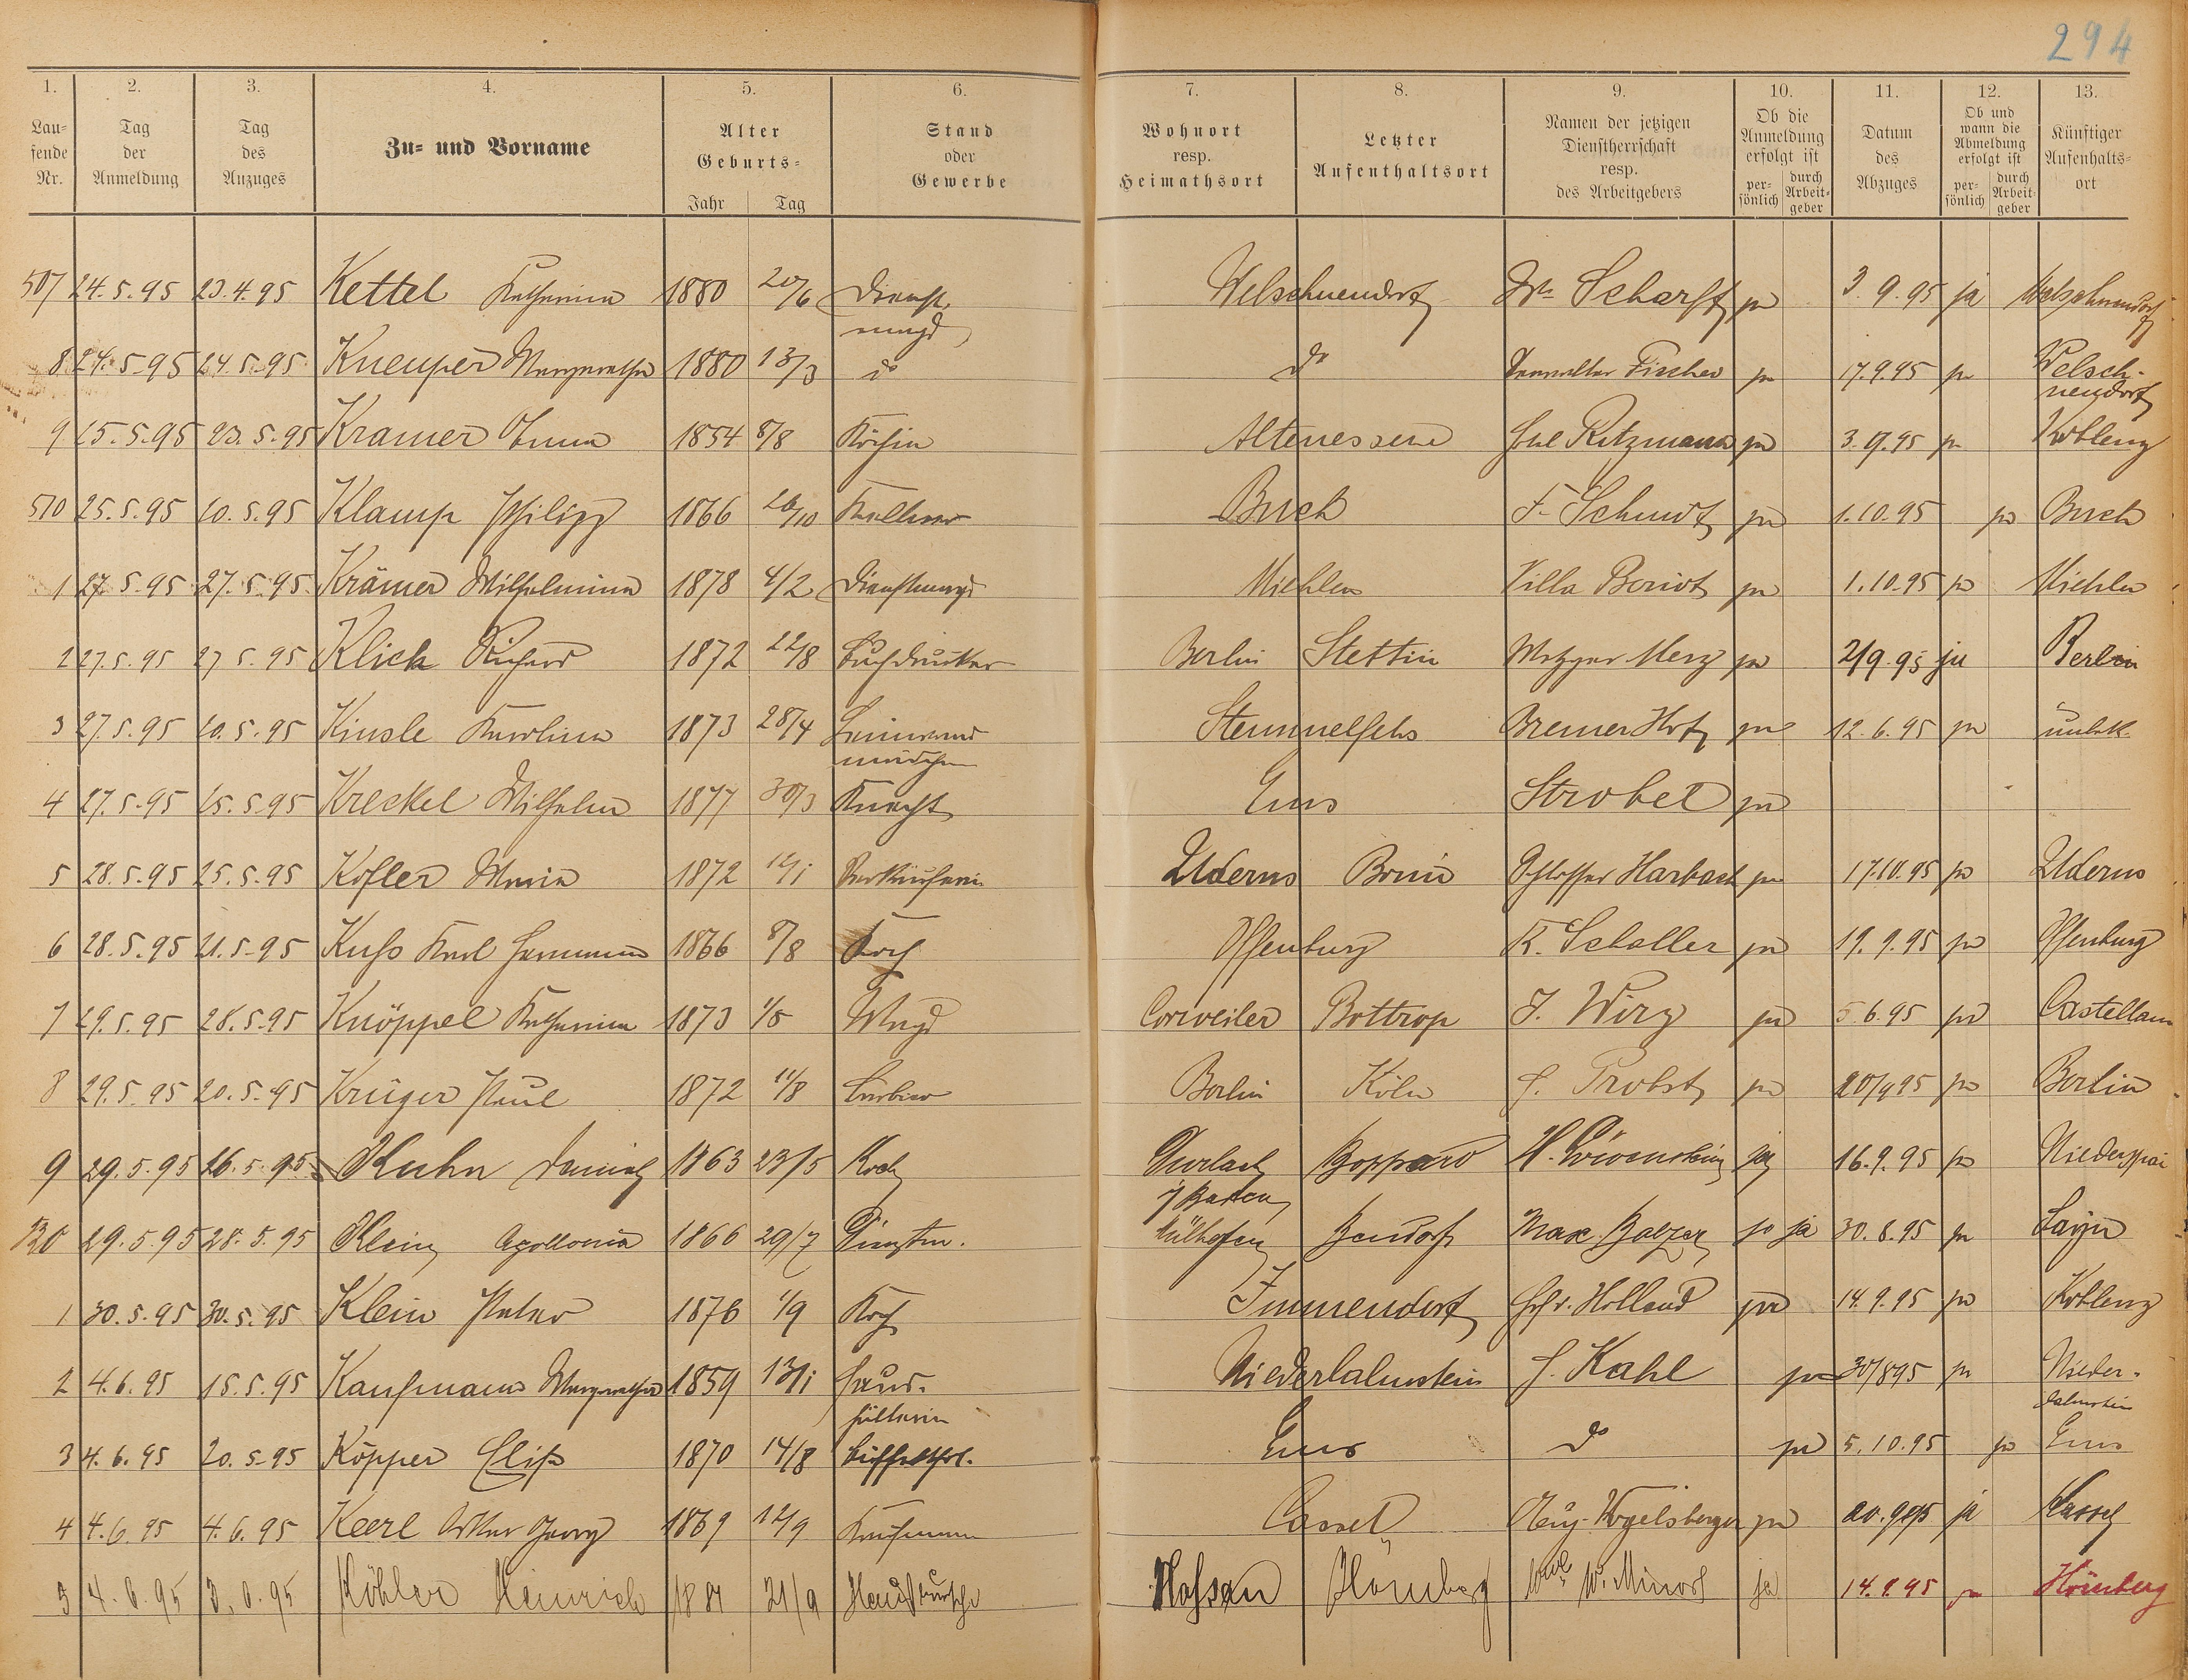 294
1. 2. 3. 4. 5. 6. 7. 8. 9. 10. 11. 12. 13.
Laufende Nr. Tag der Anmeldung Tag des Anzuges Zu- und Vorname Alter Geburts- Jahr Tag Stand oder Gewerbe Wohnort resp. Heimathsort Letzter Aufenthaltsort Namen der jetzigen Dienstherrschaft resp. des Arbeitgebers Ob die Anmeldung erfolgt ist persönlich durch Arbeitgeber Datum des Abzuges Ob und wann die Abmeldung erfolgt ist persönlich durch Arbeitgeber Künftiger Aufenhaltsort
507 24.5.95 23.4.95 Kettel Katharina 1880 20/6 Dienstmagd Welschneudorf Dr. Scharff ja 3.9.95 ja Welschneudorf
8 24.5.95 24.5.95 Kneuper Margaretha 1880 13/3 do do Verwalter Fischer ja 17.9.95 ja Welschneudorf
9 25.5.95 23.5.95 Kramer Anna 1854 8/8 Köchin Altenessen Hul Ritzmann ja 3.9.95 ja Koblenz
510 25.5.95 10.5.95 Klamp Philipp 1866 26/10 Kellner Buch F. Schmidt ja 1.10.95 ja Buch
1 27.5.95 27.5.95 Krämer Wilhelmina 1878 4/2 Dienstmagd Miehlen Villa Beriot ja 1.10.95 ja Miehlen
2 27.5.95 27.5.95 Klick Richard 1872 22/8 Buchdrucker Berlin Stettin Metzger Merz ja 2/9.95 ja Berlin
3 27.5.95 10.5.95 Kinsle Karolina 1873 28/4 Leinwandmädchen Bremer Hof ja 12.6.95 ja unbek.
4 27.5.95 15.5.95 Kreckel Wilhelm 1877 30/3 Knecht Ems Strobel ja
5 28.5.95 25.5.95 Kofler Maria 1872 12/1 Verkäuferin Uderns Schlosser Harbach ja 17.10.95 ja Uderns
6 28.5.95 21.5.95 Kuhs Karl Hermann 1866 8/8 Koch Offenburg K. Scheller ja 19.9.95 ja Offenburg
7 29.5.95 28.5.95 Knöppel Katharina 1873 1/5 Magd Corweiler Bottrop J. Wirz ja 5.6.95 ja Castellaun
8 29.5.95 20.5.95 Krüger Paul 1872 11/8 Barbier Berlin Köln H. Probst ja 20/9 95 ja Berlin
9 29.5.95 26.5.95 Kuhn Daniel 1863 23/5 Koch Durlach i/Baden Boppard H. Löwenstein ja 16.9.95 ja Niederspai
520 29.5.95 28.5.95 Klein Apollonia 1866 29/7 Dienstm. Mülhofen Bendorf Max Balzer ja ja 30.8.95 ja Sayn
1 30.5.95 30.5.95 Klein Peter 1876 1/9 Koch Immendorf Hof v. Holland ja 14.9.95 ja Koblenz
2 4.6.95 15.5.95 Kaufmann Margaretha 1859 13/1 Haushälterin Niederlahnstein H. Kahl ja 30/8 95 ja Niederlahnstein
3 4.6.95 20.5.95 Köpper Elise 1870 14/8 Büffetfrl. Ems do ja 5.10.95 ja Ems
4 4.6.95 4.6.95 Keerl Arthur Georg 1869 12/9 Kaufmann Cassel Aug. Vogelsberger ja 20.9.95 ja Kassel
5 4.6.95 3.6.95 Köhler Heinrich 21/9 Hausbursche Nassau Hömberg Wwe W. Minor ja 14.9.95 ja Hömberg